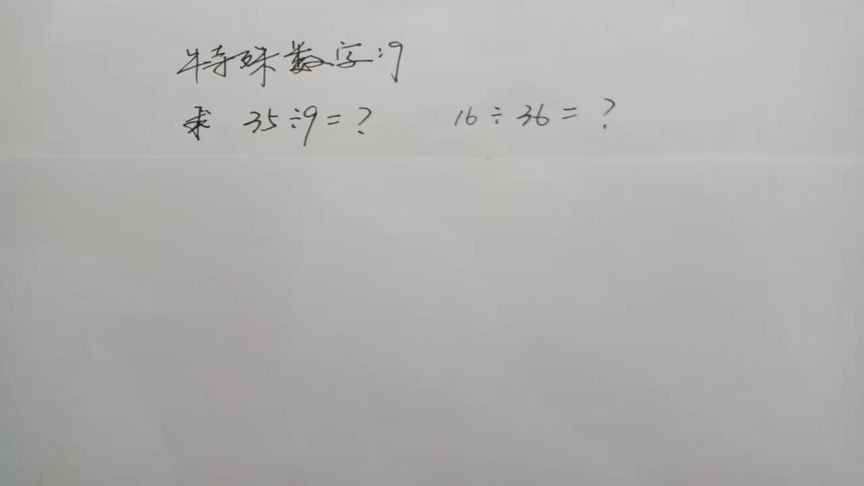 特殊数字:9
求 35÷9=? 16÷36=?